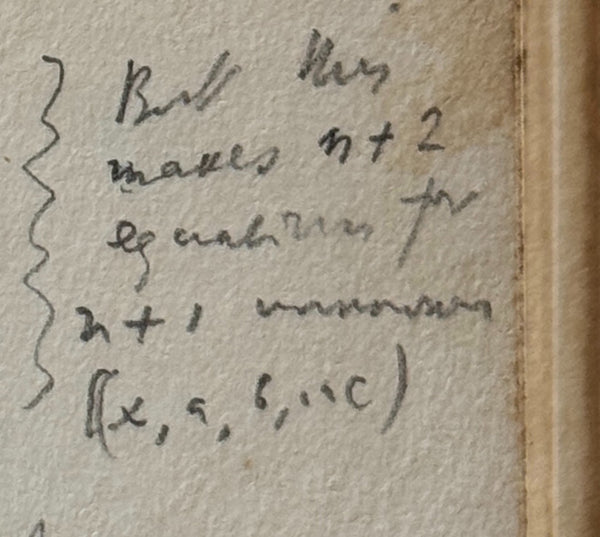 But this
makes n + 2
equations for
n + 1 unknowns
(x, a, b, .. c)